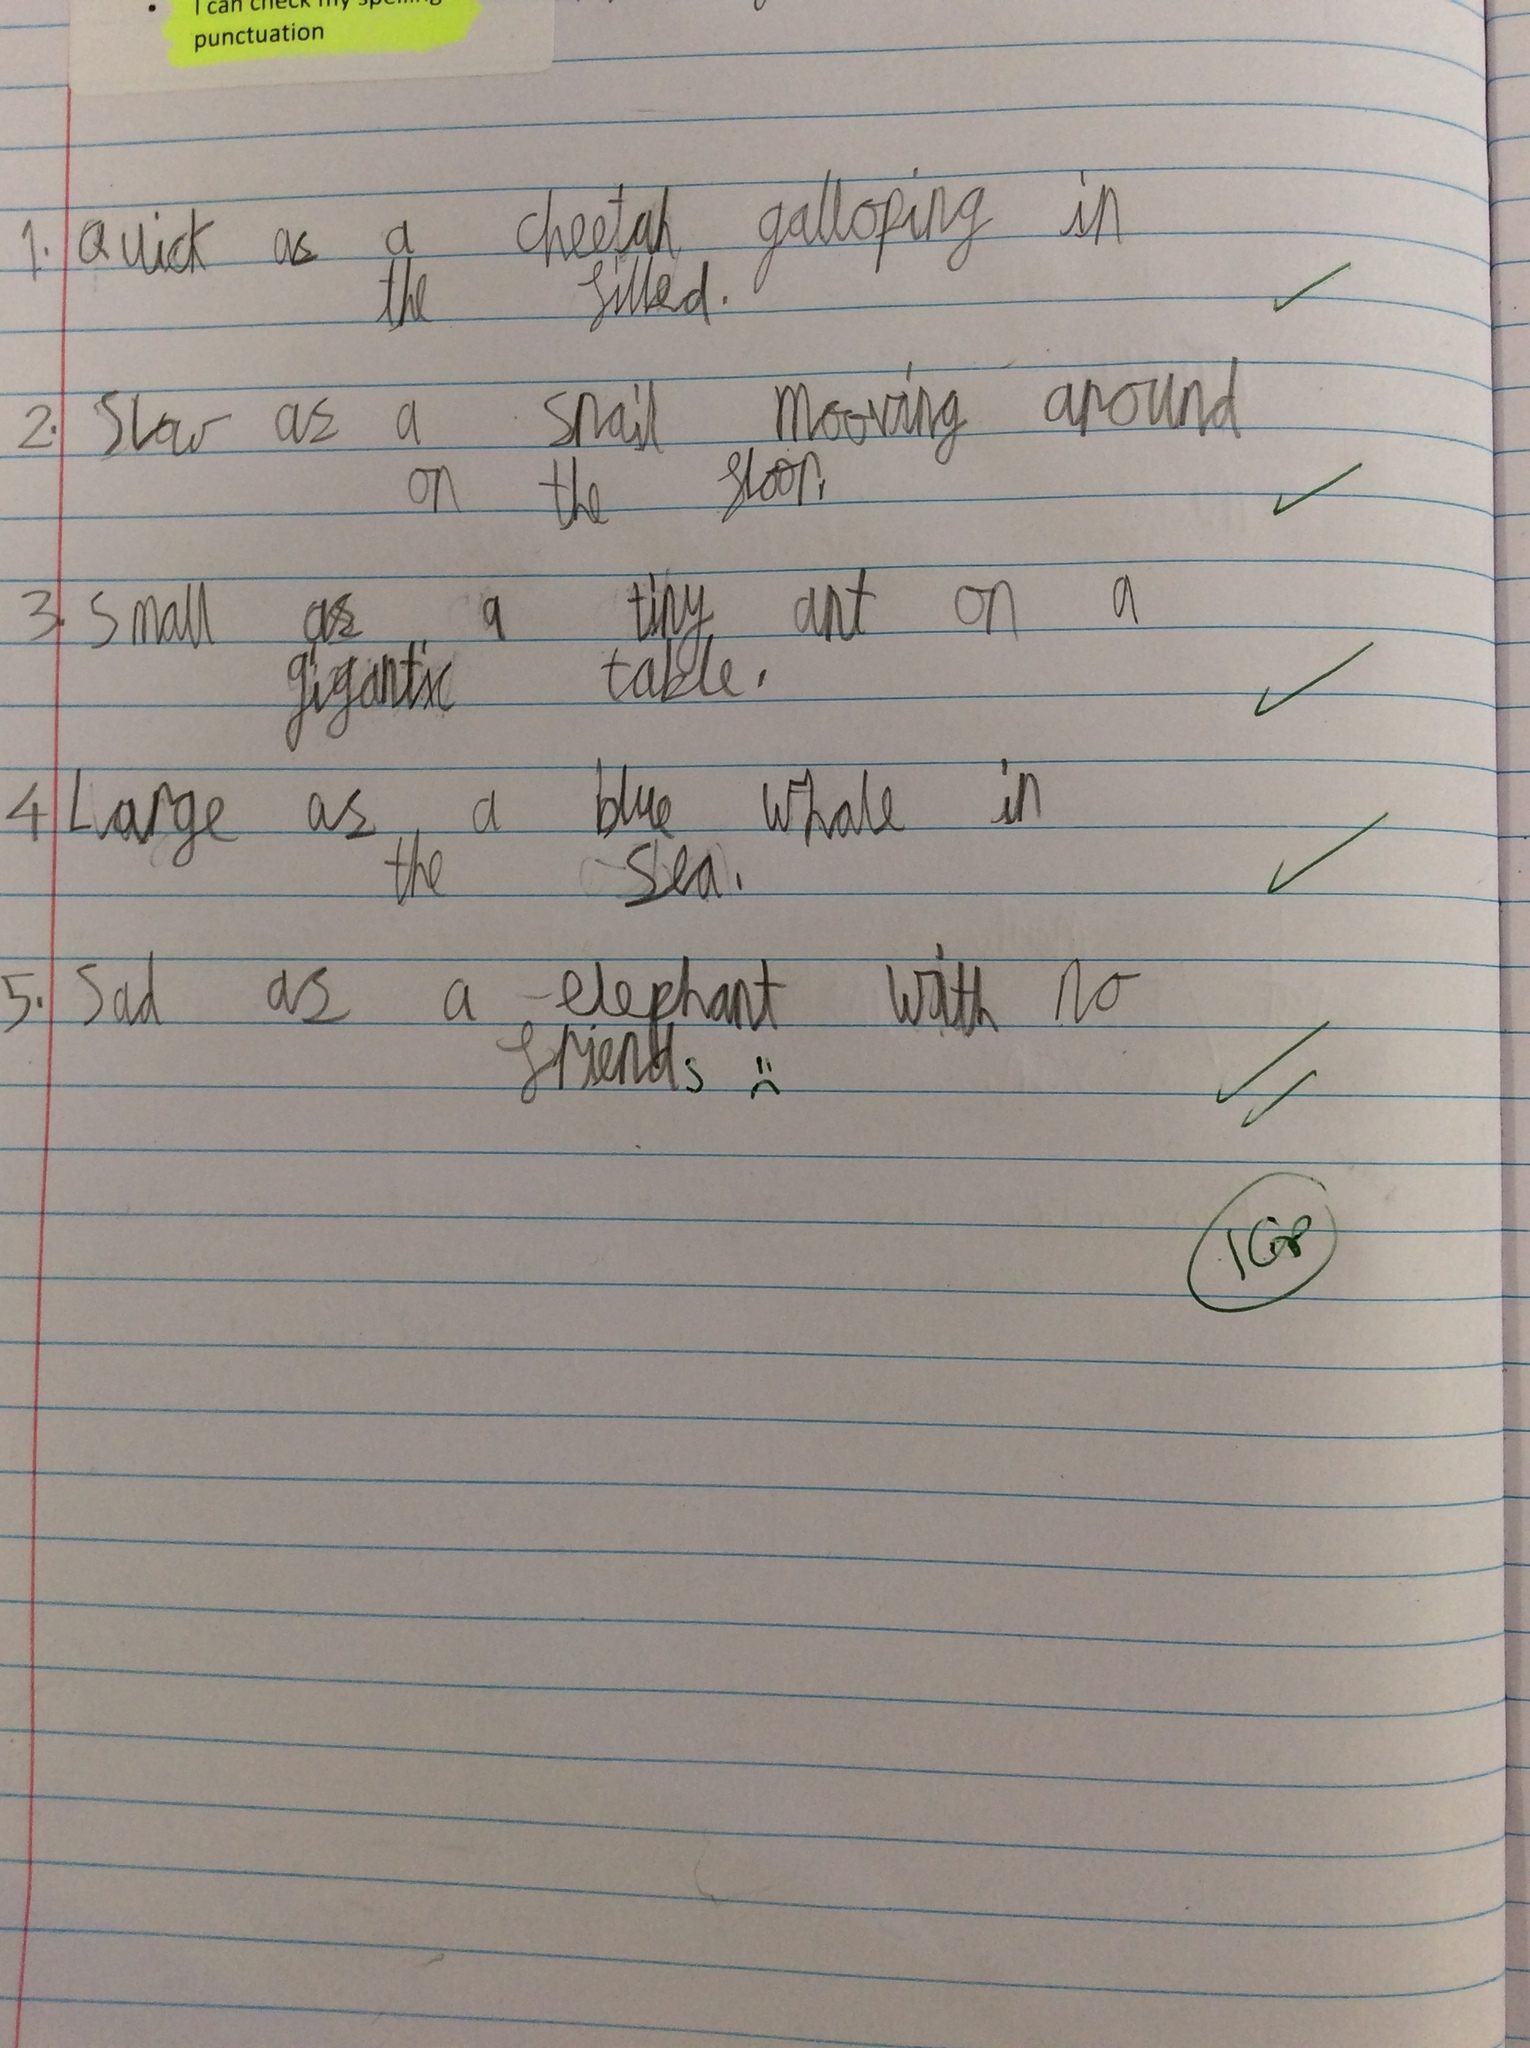 I can check my spelling
punctuation
1. Quick as a cheetah galloping in
the filled.
2. Slow as a snail mooving around
on the floor.
3. Small as a tiny ant on a
gigantic table.
4 Large as a blue whale in
the sea.
5. Sad as a elephant with no
friends :(
1GP